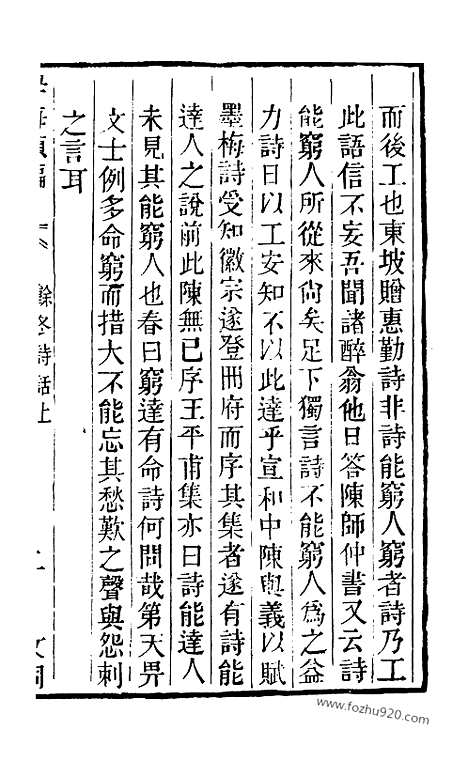 而後工也東坡贈惠勤詩非詩能窮人窮者詩乃工
此語信不妄吾聞諸醉翁他日答陳師仲書又云詩
能窮人所從來尙矣足下獨言詩不能窮人爲之益
力詩日以工安知不以此達乎宣和中陳與義以賦
墨梅詩受知徽宗遂登冊府而序其集者遂有詩能
達人之說前此陳無已序王平甫集亦曰詩能達人
未見其能窮人也春曰窮達有命詩何問哉第天畀
文士例多命窮而措大不能忘其愁歎之聲與怨刺
之言耳
餘冬詩話上
www.fozhu920.com